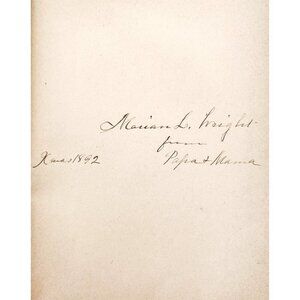 Marian L. Wright
from
Xmas 1892 Papa & Mama